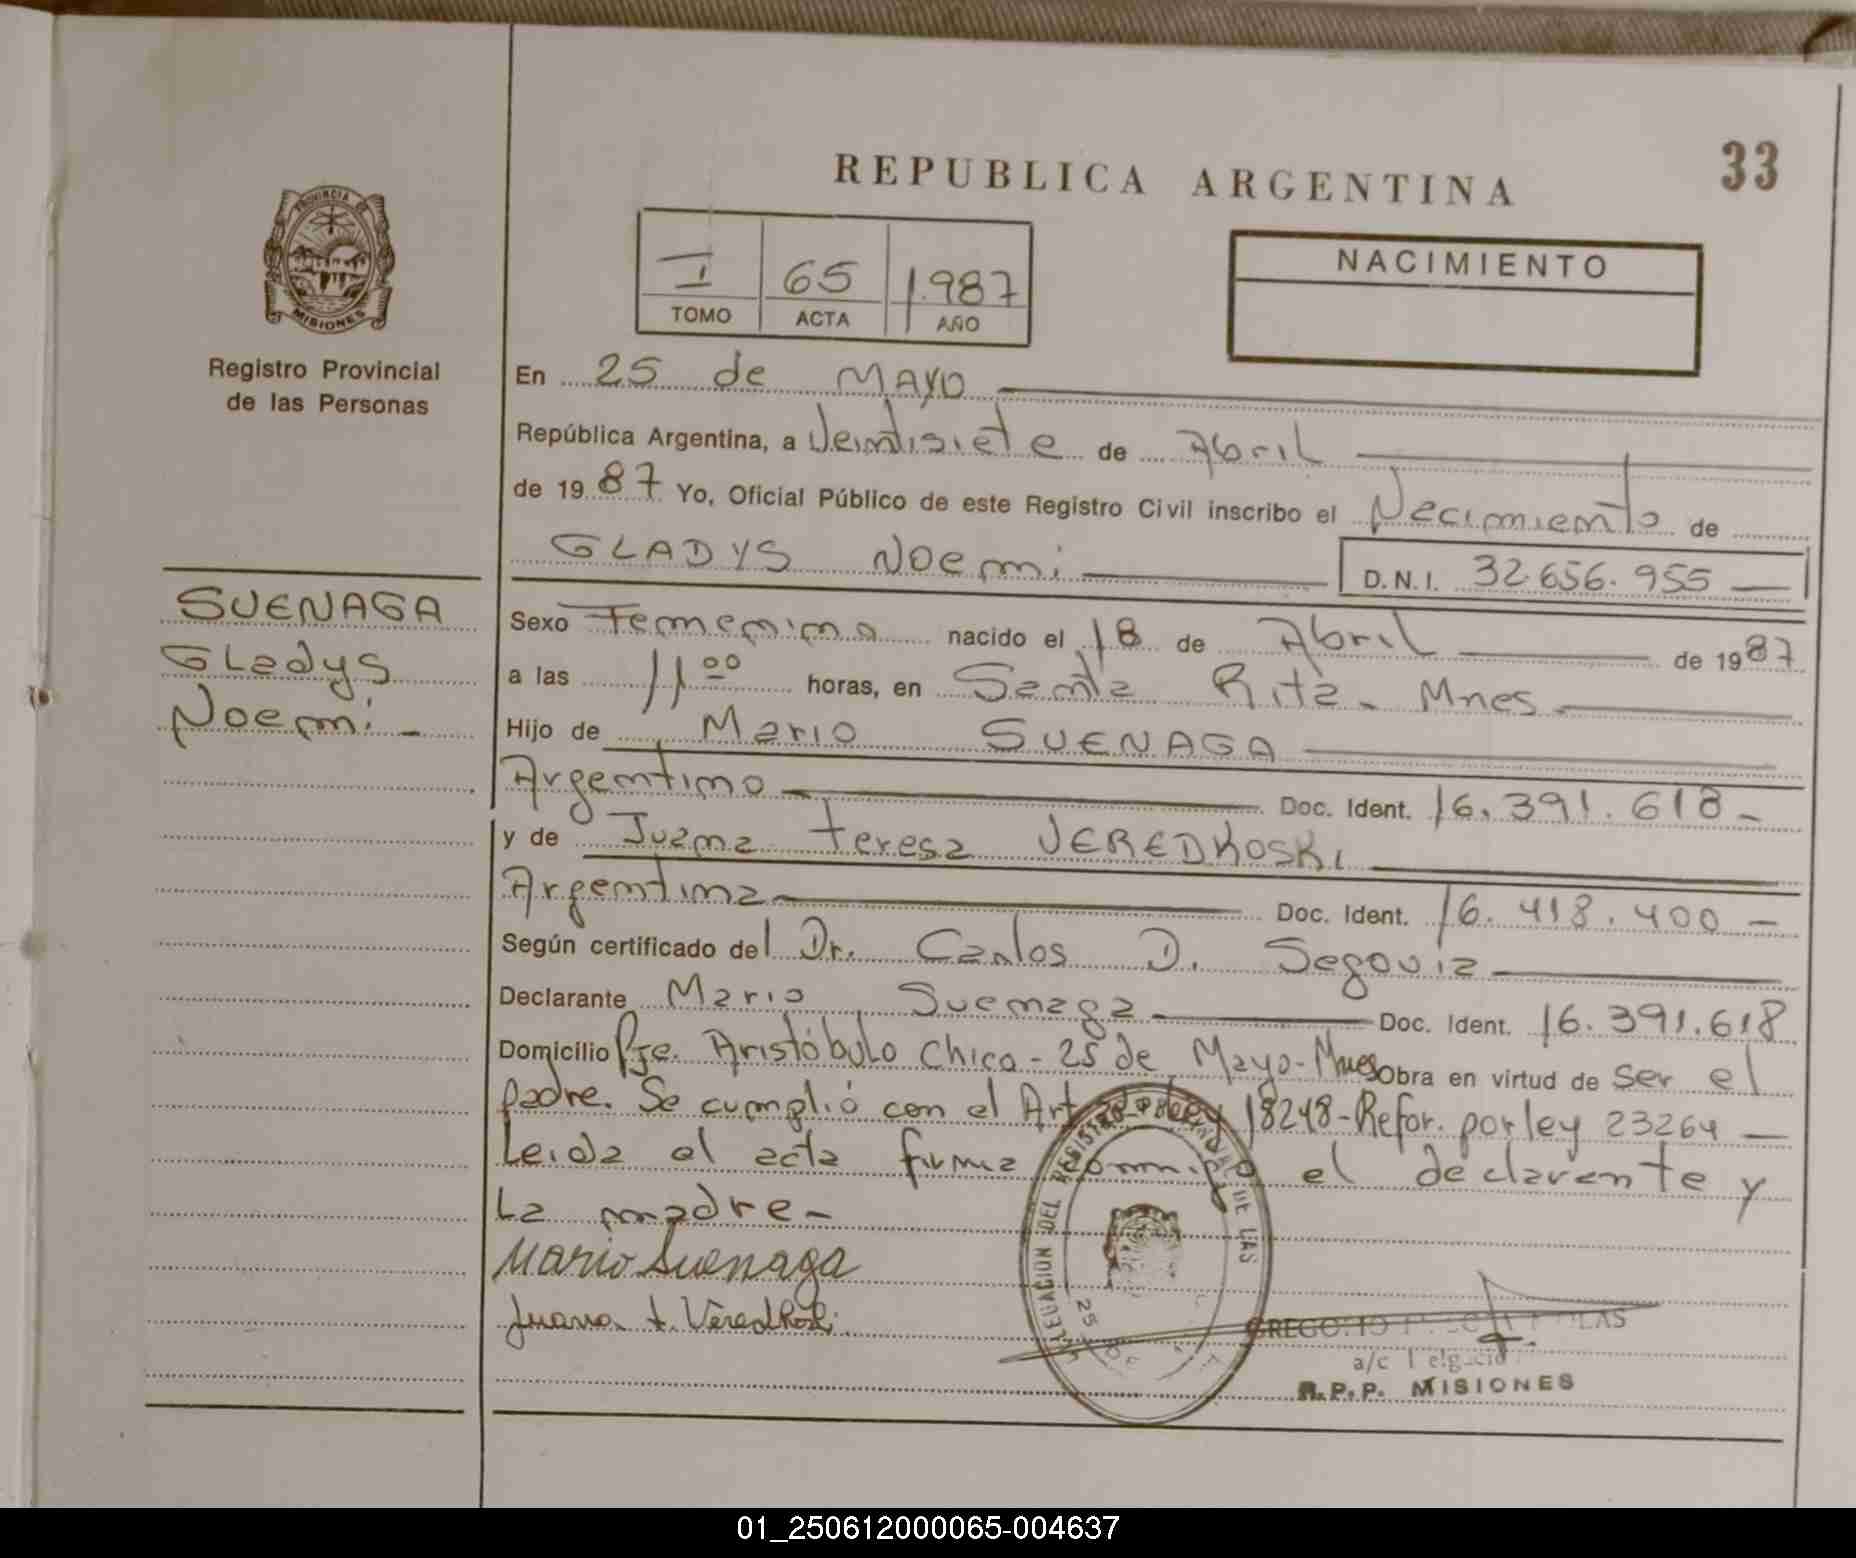 33
REPUBLICA ARGENTINA
PROVINCIA DE
MISIONES
I 65 1.987
TOMO ACTA AÑO
NACIMIENTO
Registro Provincial
de las Personas
SUENAGA
Gladys
Noemi.-
En 25 de MAYO
República Argentina, a Veintisiete de Abril
de 1987 Yo, Oficial Público de este Registro Civil inscribo el Nacimiento de
GLADYS Noemi D.N.I. 32.656.955
Sexo Femenina nacido el 18 de Abril de 1987
a las 11 00 horas, en Santa Rita - Mnes
Hijo de Mario SUENAGA
Argentino Doc. Ident. 16.391.618-
y de Juana Teresa VEREDKOSKI
Argentina Doc. Ident. 16.418.400-
Según certificado del Dr. Carlos D. Segovia
Declarante Mario Suenaga Doc. Ident. 16.391.618
Domicilio Pje. Aristóbulo Chico - 25 de Mayo - Mnes Obra en virtud de ser el
padre. Se cumplió con el Art. ley 18248-Refor. por ley 23264
Leída el acta firma conmigo el declarante y
La madre-
Mario Suenaga
Juana t. Veredkoski
REGISTRO PROVINCIAL DE LAS
DELEGACION DEL
25 DE
a/c
R.P.P. MISIONES
01_250612000065-004637